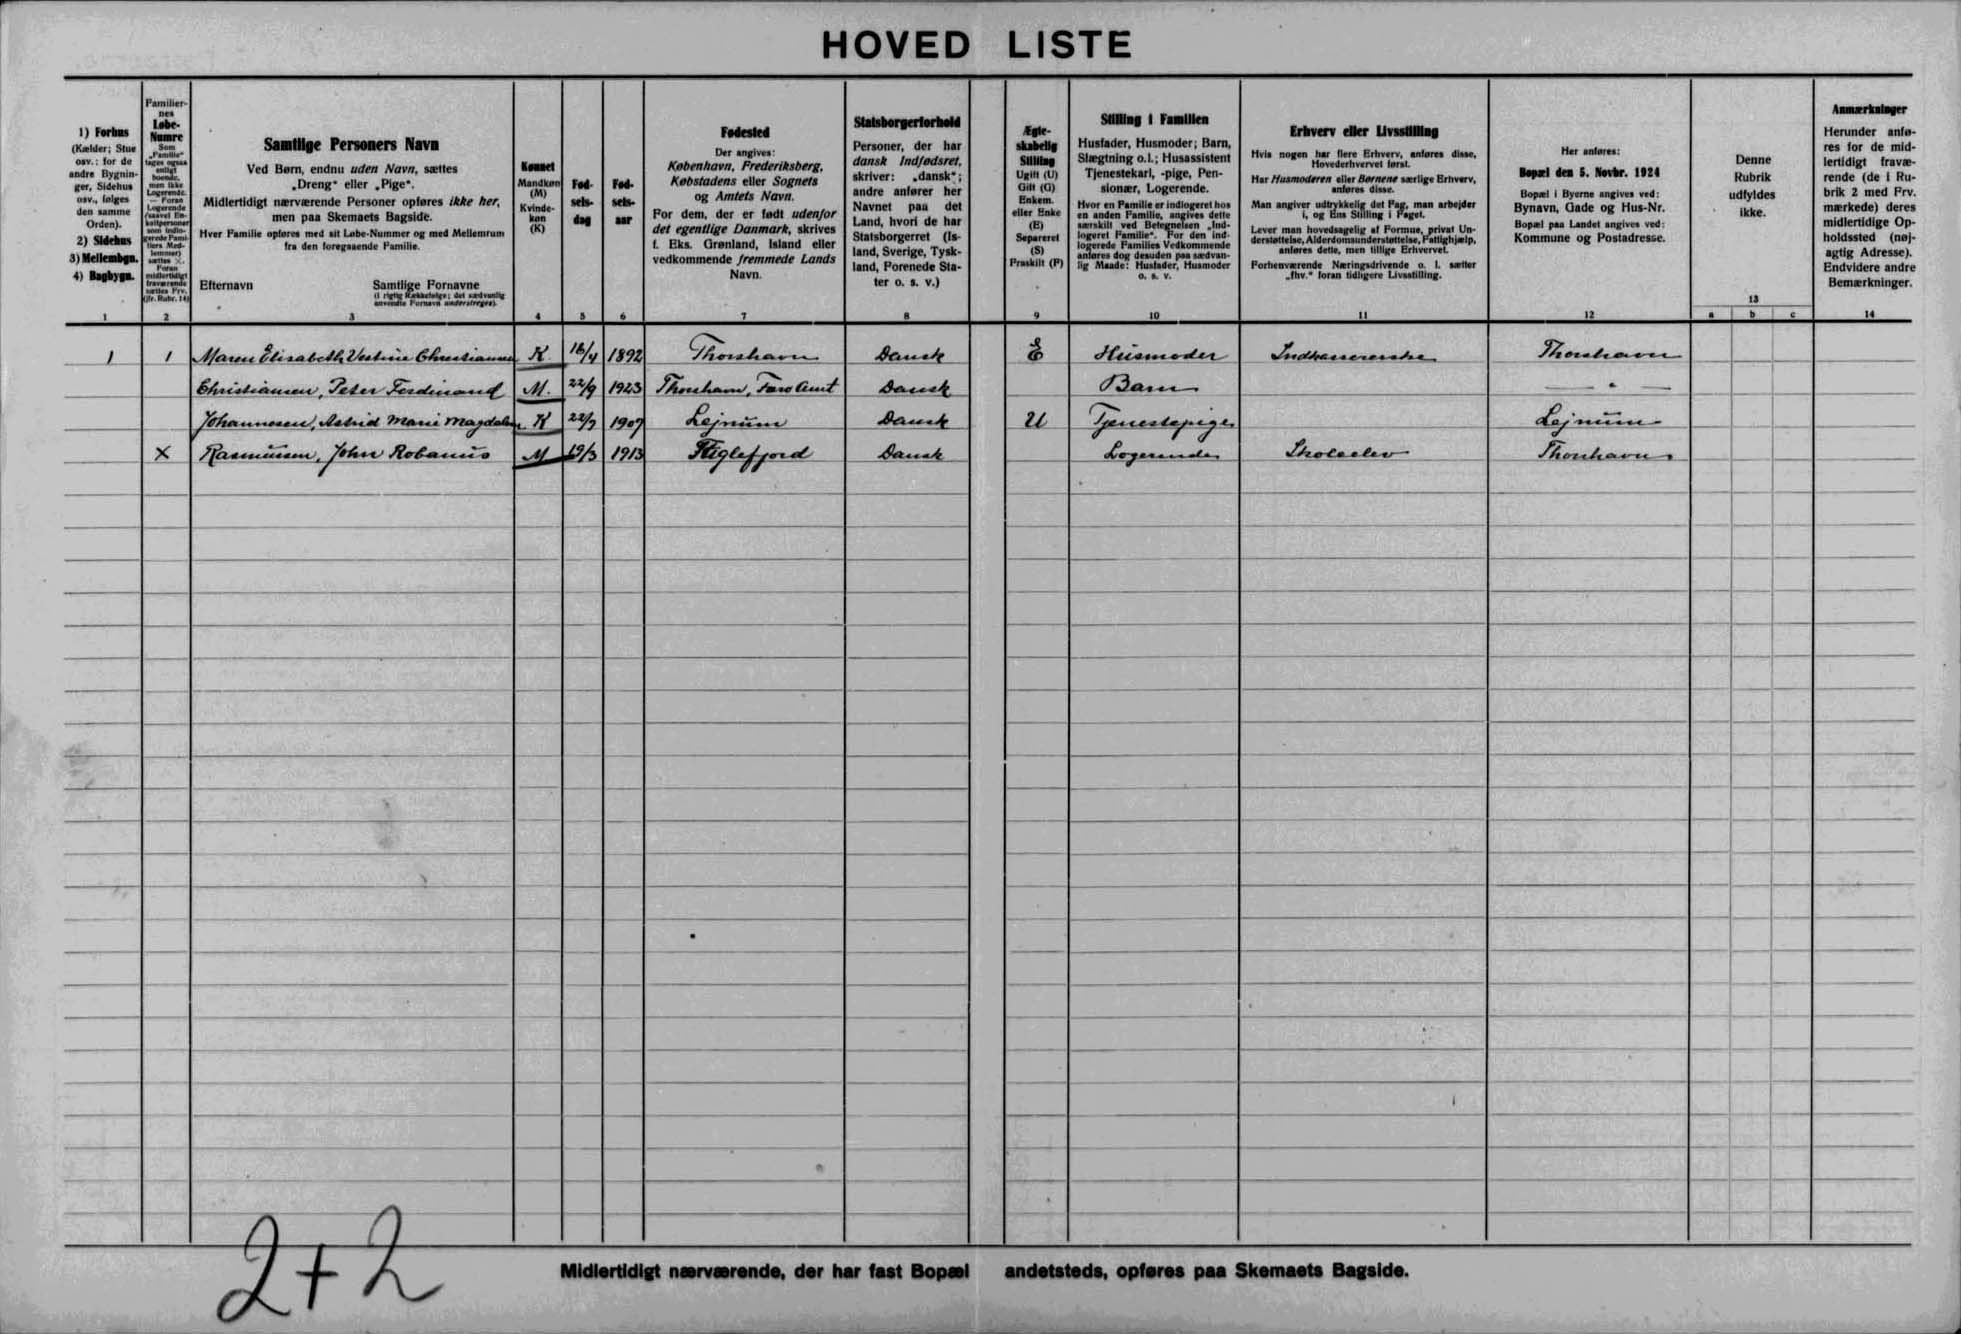 HOVED LISTE
1) Forhus
(Kælder; Stue
osv.: for de
andre Bygnin-
ger, Sidehus
osv., følges
den samme
Orden).
2) Sidehus
3) Mellembgn.
4) Bagbygn.
Familier-
nes
Løbe-
Numre
Som
„Familie“
tages ogsaa
enligt
boende,
men ikke
Logerende.
— Foran
Logerende
(saavel En-
keltpersoner
som indlo-
gerede Fami-
liers Med-
lemmer)
sættes ×.
Foran
midlertidigt
fraværende
sættes Frv.
(jfr. Rubr. 14)
Samtlige Personers Navn
Ved Børn, endnu uden Navn, sættes
„Dreng“ eller „Pige“.
Midlertidigt nærværende Personer opføres ikke her,
men paa Skemaets Bagside.
Hver Familie opføres med sit Løbe-Nummer og med Mellemrum
fra den foregaaende Familie.
Efternavn Samtlige Fornavne
(i rigtig Rækkefølge; det sædvanlig
anvendte Fornavn understreges).
Kønnet
Mandkøn
(M)
Kvinde-
køn
(K)
Fød-
sels-
dag
Fød-
sels-
aar
Fødested
Der angives:
København, Frederiksberg,
Købstadens eller Sognets
og Amtets Navn.
For dem, der er født udenfor
det egentlige Danmark, skrives
f. Eks. Grønland, Island eller
vedkommende fremmede Lands
Navn.
Statsborgerforhold
Personer, der har
dansk Indfødsret,
skriver: „dansk“;
andre anfører her
Navnet paa det
Land, hvori de har
Statsborgerret (Is-
land, Sverige, Tysk-
land, Forenede Sta-
ter o. s. v.)
Ægte-
skabelig
Stilling
Ugift (U)
Gift (G)
Enkem.
eller Enke
(E)
Separeret
(S)
Fraskilt (F)
Stilling i Familien
Husfader, Husmoder; Barn,
Slægtning o.l.; Husassistent
Tjenestekarl, -pige, Pen-
sionær, Logerende.
Hvor en Familie er indlogeret hos
en anden Familie, angives dette
særskilt ved Betegnelsen „Ind-
logeret Familie“. For den ind-
logerede Families Vedkommende
anføres dog desuden paa sædvan-
lig Maade: Husfader, Husmoder
o. s. v.
Erhverv eller Livsstilling
Hvis nogen har flere Erhverv, anføres disse,
Hovederhvervet først.
Har Husmoderen eller Børnene særlige Erhverv,
anføres disse.
Man angiver udtrykkelig det Fag, man arbejder
i, og Ens Stilling i Faget.
Lever man hovedsagelig af Formue, privat Un-
derstøttelse, Alderdomsunderstøttelse, Fattighjælp,
anføres dette, men tillige Erhvervet.
Forhenværende Næringsdrivende o. l. sætter
„fhv.“ foran tidligere Livsstilling.
Her anføres:
Bopæl den 5. Novbr. 1924
Bopæl i Byerne angives ved:
Bynavn, Gade og Hus-Nr.
Bopæl paa Landet angives ved:
Kommune og Postadresse.
Denne
Rubrik
udfyldes
ikke.
Anmærkninger
Herunder anfø-
res for de mid-
lertidigt fravæ-
rende (de i Ru-
brik 2 med Frv.
mærkede) deres
midlertidige Op-
holdssted (nøj-
agtig Adresse).
Endvidere andre
Bemærkninger.
1 2 3 4 5 6 7 8 9 10 11 12 13 a b c 14
1 1 Maren Elisabeth Vestine Christiansen K. 18/4 1892 Thorshavn Dansk E Husmoder Indkassererske Thorshavn
Christiansen, Peter Ferdinand M. 22/9 1923 Thorshavn, Færø Amt Dansk Barn — " —
Johannesen, Astrid Marie Magdalen K 22/7 1907 Lejnum Dansk U Tjenestepige Lejnum
× Rasmussen, John Robanus M 19/3 1913 Fuglefjord Dansk Logerende Skoleelev Thorshavn
2+2
Midlertidigt nærværende, der har fast Bopæl andetsteds, opføres paa Skemaets Bagside.